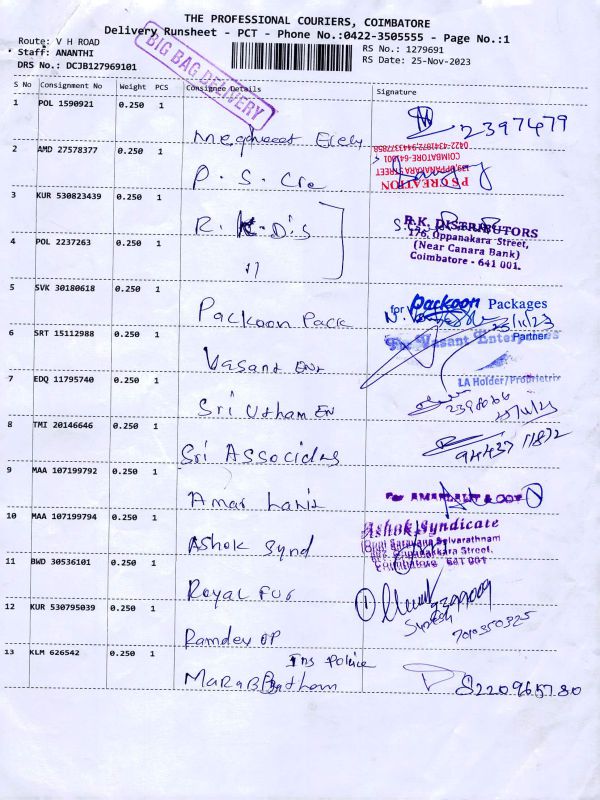 THE PROFESSIONAL COURIERS, COIMBATORE
Delivery Runsheet - PCT - Phone No.:0422-3505555 - Page No.:1
Route: V H ROAD
Staff: ANANTHI
DRS No.: DCJB127969101
RS No.: 1279691
RS Date: 25-Nov-2023
BIG BAG DELIVERY
S No Consignment No Weight PCS Consignee Details Signature
1 POL 1590921 0.250 1 2397479
2 AMD 27578377 0.250 1 P. S. Cre
PSCREATION
COIMBATORE-641001
3 KUR 530823439 0.250 1 R. K. Dis
R.K. DISTRIBUTORS
176, Oppanakara Street,
(Near Canara Bank)
Coimbatore - 641 001.
4 POL 2237263 0.250 1 "
5 SVK 30180618 0.250 1 Packoon Pack
for Packoon Packages
25/11/23
Partner
6 SRT 15112988 0.250 1 Vasant Ent
For Vasant Enterprises
LA Holder/Proprietrix
7 EDQ 11795740 0.250 1 Sri Utham EN
25/11/23
8 TMI 20146646 0.250 1 Sri Associates
94437 11872
9 MAA 107199792 0.250 1 Amar
10 MAA 107199794 0.250 1 Ashok Synd
Ashok Syndicate
Coimbatore 641 001
11 BWD 30536101 0.250 1 Royal Fur
1
12 KUR 530795039 0.250 1 Ramdev OP
Suresh
7010350325
13 KLM 626542 0.250 1
8220965780